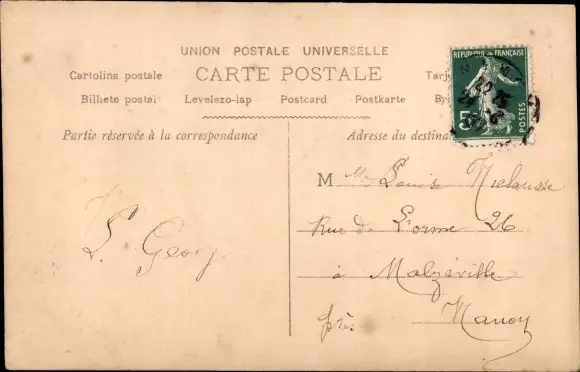 UNION POSTALE UNIVERSELLE
CARTE POSTALE
Cartolina postale
Tarj
Bilhete postal Levelezo-lap Postcard Postkarte Bri
Partie réservée à la correspondance
Adresse du destina
REPUBLIQUE FRANÇAISE
5c
POSTES
M Louise
Rue de Lorme 26
à Malzéville
près Nancy
L. Georg